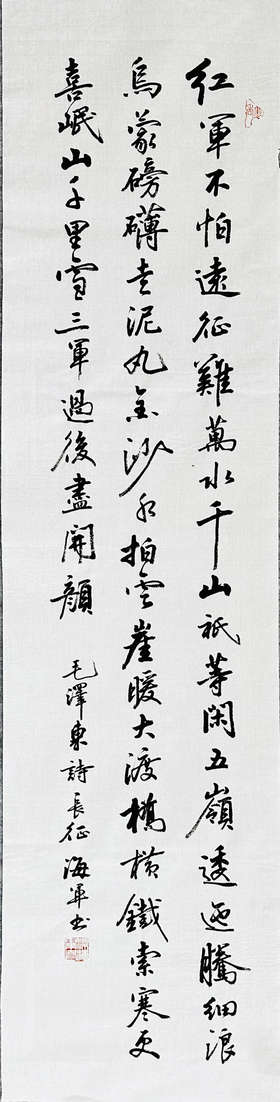 紅軍不怕遠征難萬水千山祇等閑五嶺透迤騰細浪
烏蒙磅礴走泥丸金沙水拍雲崖暖大渡橋橫鐵索寒更
喜岷山千里雪三軍過後盡開顏
毛澤東詩長征海軍書